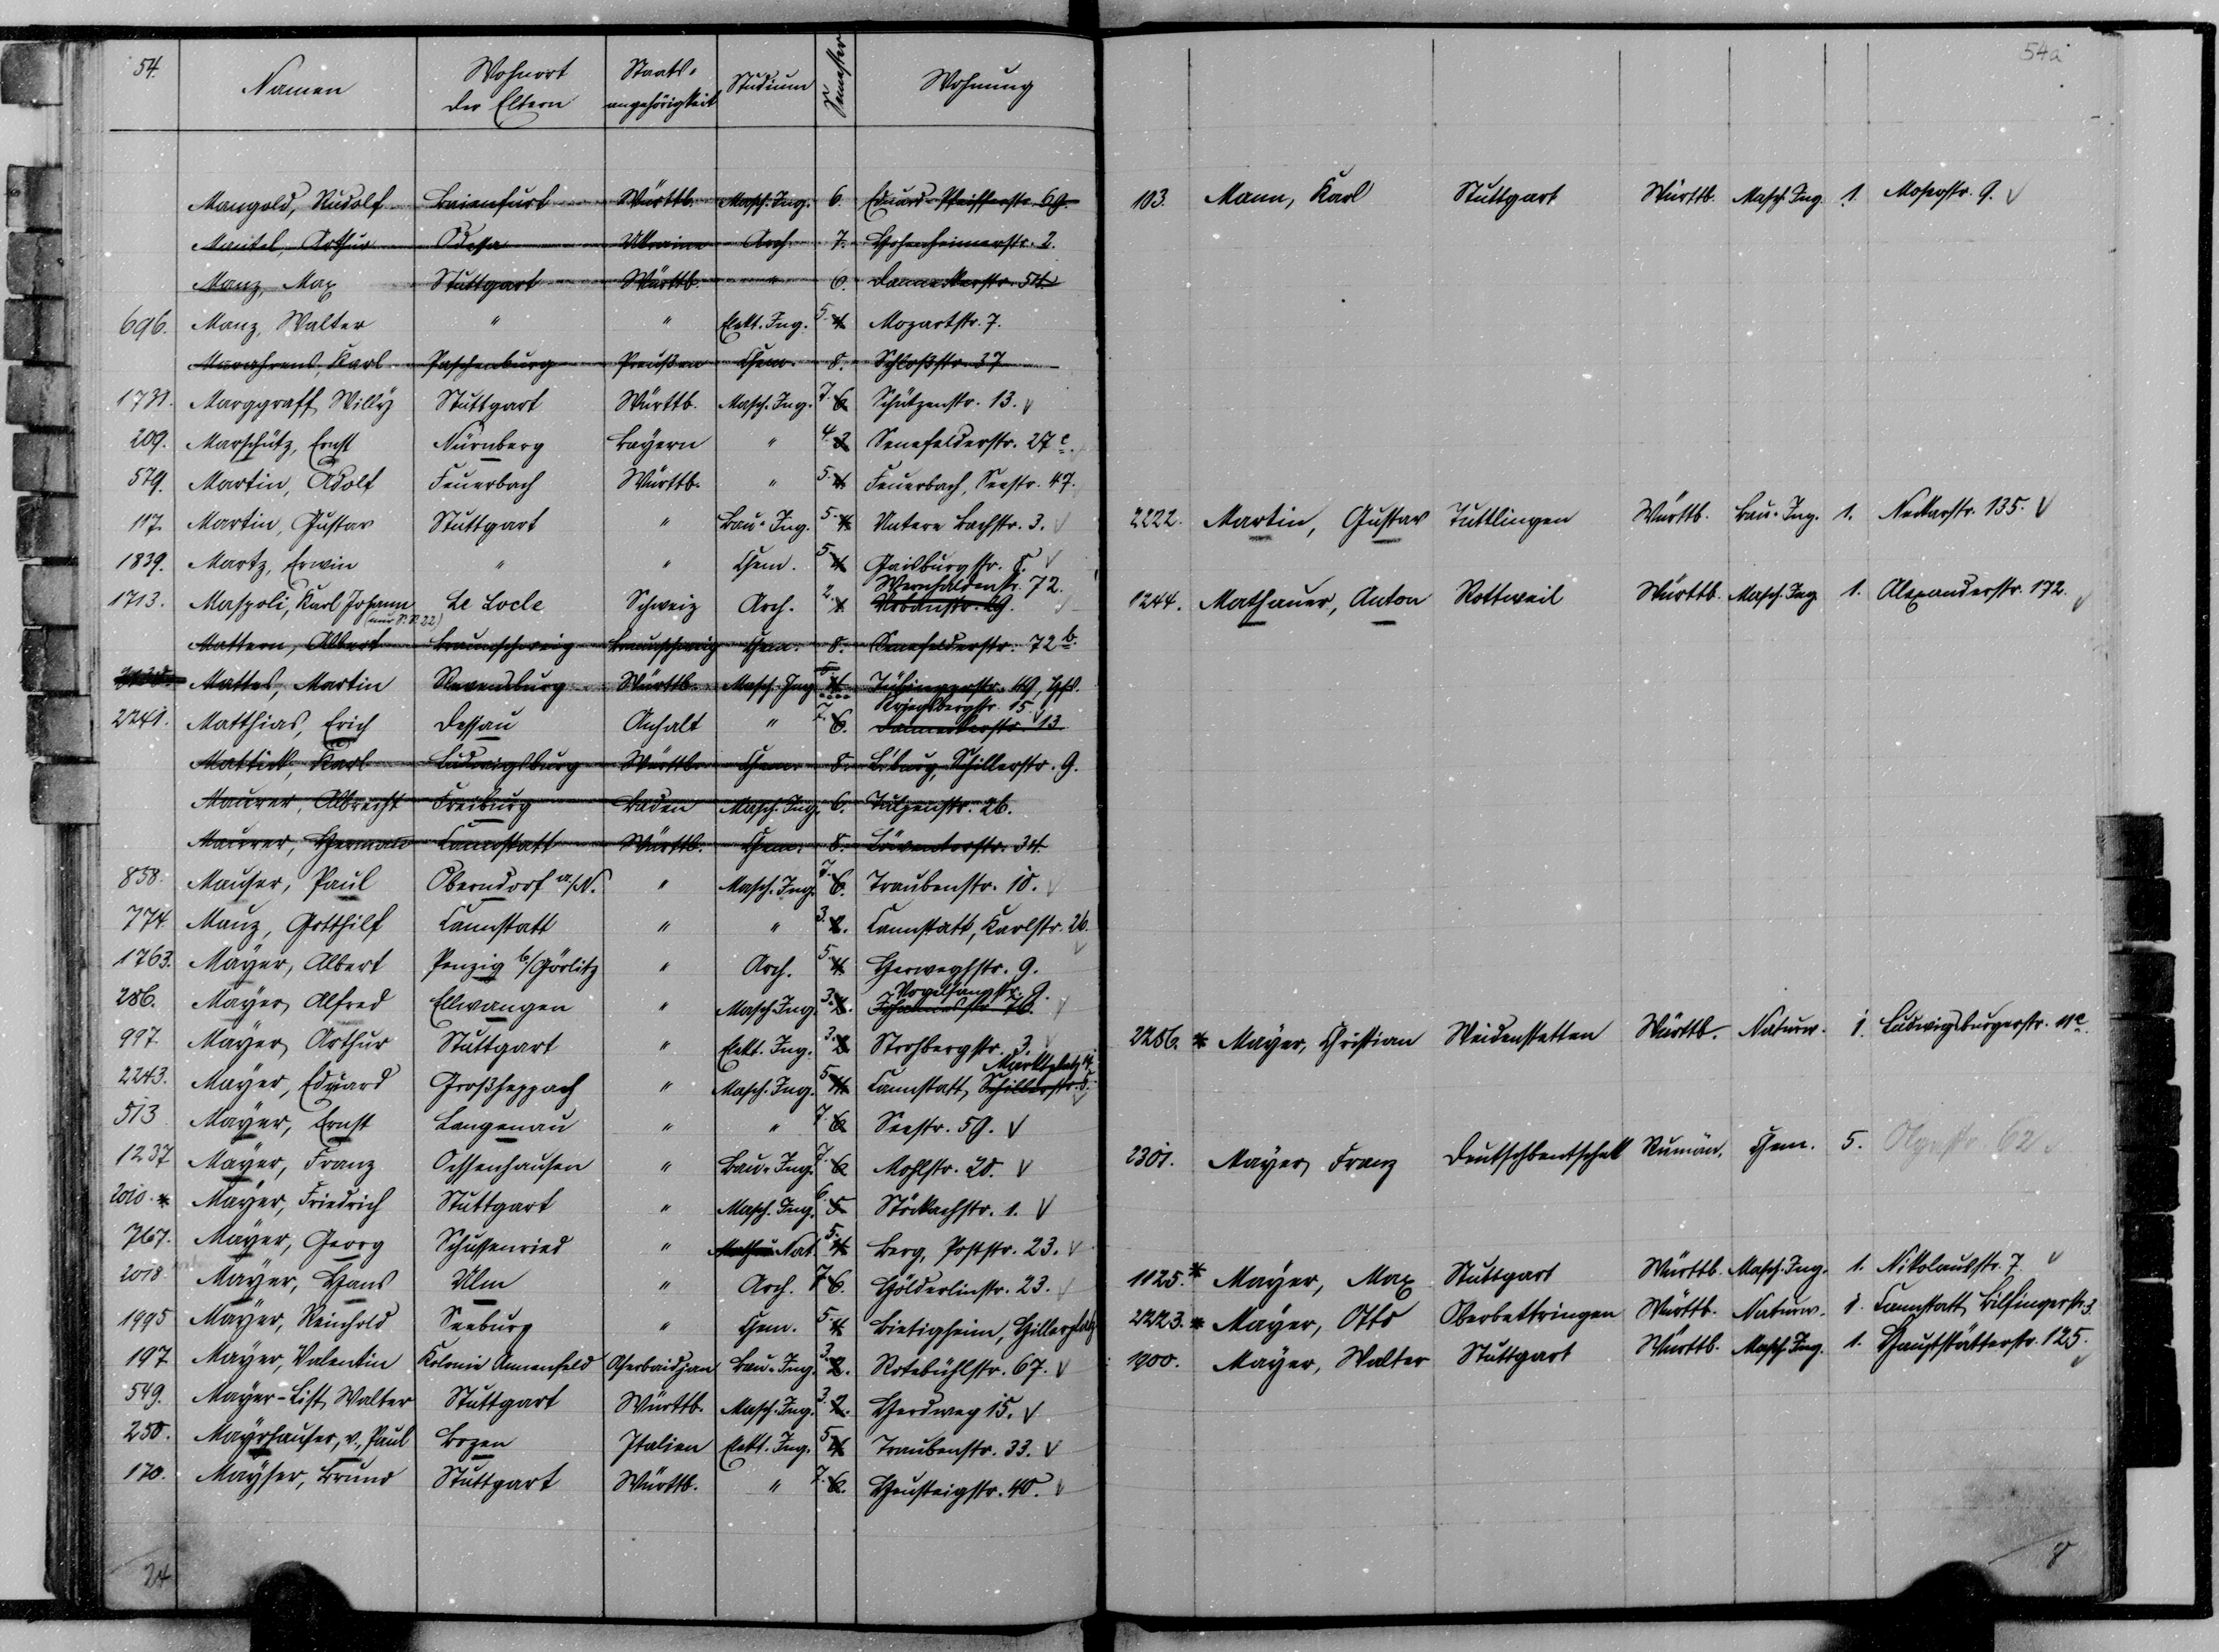 54.
Namen
Wohnort der Eltern
Staats-angehörigkeit
Studium
Semester
Wohnung
Mangold, Rudolf Baienfurt Württb. Masch. Ing. 6. Eduard-Pfeifferstr. 69.
Mantel, Arthur Odessa Ukraine Arch. 7. Hohenheimerstr. 2.
Manz, Max Stuttgart Württb. " 6. Danneckerstr. 54.
696. Manz, Walter " " Elekt. Ing. 5. 4. Mozartstr. 7.
Marahrens, Karl Paschenburg Preußen Chem. 8. Schloßstr. 37
1731. Marggraff, Willy Stuttgart Württb. Masch. Ing. 7. 6. Schützenstr. 13. ✓
209. Marschütz, Ernst Nürnberg Bayern " 4. 3 Senefelderstr. 27 c. ✓
579. Martin, Adolf Feuerbach Württb. " 5. 4. Feuerbach, Seestr. 47.
117. Martin, Gustav Stuttgart " Bau-Ing. 5. 4. Untere Bachstr. 3. ✓
1839. Martz, Erwin " " Chem. 5. 4 Gaisburgstr. 8. ✓
Wernhaldenstr. 72.
1713. Maspoli, Karl Johann Le Locle Schweiz Arch. 2. 1 Urbanstr. 29. ✓
(nur S.S. 22)
Mattern, Albert Braunschweig Braunschweig Chem. 8. Senefelderstr. 72 b.
Mattes, Martin Ravensburg Württb. Masch. Ing. 5. 4. Tübingerstr. 49, Hfs.
Kriegsbergstr. 15. ✓
2241. Matthias, Erich Dessau Anhalt " 7. 6. Danneckerstr. 13
Mattick, Karl Ludwigsburg Württb. Chem. 8. L'burg, Schillerstr. 9.
Maurer, Albrecht Freiburg Baden Masch. Ing. 6. Tulpenstr. 26.
Maurer, Hermann Cannstatt Württb. Chem. 8. Löwentorstr. 34.
858. Mauser, Paul Oberndorf a/N. " Masch. Ing. 7. 6. Traubenstr. 10. ✓
774. Mauz, Gotthilf Cannstatt " " 3. 2. Cannstatt, Karlstr. 26. ✓
1763. Mayer, Albert Penzig b/Görlitz " Arch. 5. 4. Herweghstr. 9.
Vogelsangstr. 9.
286. Mayer, Alfred Ellwangen " Masch. Ing. 3. 2. Johannesstr. 76. ✓
997. Mayer, Arthur Stuttgart " Elekt. Ing. 3. 2. Strohbergstr. 3. ✓
Marktplatz 4.
2243. Mayer, Eduard Großheppach " Masch. Ing. 5. 4. Cannstatt, Schillerstr. 5. ✓
513 Mayer, Ernst Langenau " " 7. 6. Seestr. 59. ✓
1237 Mayer, Franz Ochsenhausen " Bau-Ing. 7. 6. Mohlstr. 20. ✓
2010. * Mayer, Friedrich Stuttgart " Masch. Ing. 6. 5 Stöckachstr. 1. ✓
767. Mayer, Georg Schussenried " Math. Nat. 5. 4. Berg, Poststr. 23. ✓
2018. Mayer, Hans Ulm " Arch. 7. 6. Hölderlinstr. 23. ✓
1995 Mayer, Reinhold Seeburg " Chem. 5. 4 Bietigheim, Hillerplatz
197 Mayer, Valentin Kolonie Annenfeld Aserbaidjan Bau-Ing. 3. 2. Rotebühlstr. 67. ✓
549. Mayer-List, Walter Stuttgart Württb. Masch. Ing. 3. 2. Herdweg 15. ✓
250. Mayrhauser, v., Paul Bozen Italien Elekt. Ing. 5. 4 Traubenstr. 33. ✓
170. Mayser, Bruno Stuttgart Württb. " 7. 6. Heusteigstr. 40. ✓
24
54a
103. Mann, Karl Stuttgart Württb. Masch. Ing. 1. Moserstr. 9. ✓
2222. Martin, Gustav Tuttlingen Württb. Bau-Ing. 1. Neckarstr. 135. ✓
1244. Mathauer, Anton Rottweil Württb. Masch. Ing. 1. Alexanderstr. 172. ✓
2286. * Mayer, Christian Weidenstetten Württb. Naturw. 1. Ludwigsburgerstr. 11 c.
2301. Mayer, Franz Deutschbentschek Rumän. Chem. 5. Olgastr. 62 ✓
1125. * Mayer, Max Stuttgart Württb. Masch. Ing. 1. Nikolausstr. 7. ✓
2223. * Mayer, Otto Oberbettringen Württb. Naturw. 1. Cannstatt, Bilfingerstr. 3
1900. Mayer, Walter Stuttgart Württb. Masch. Ing. 1. Hauptstätterstr. 125. ✓
8